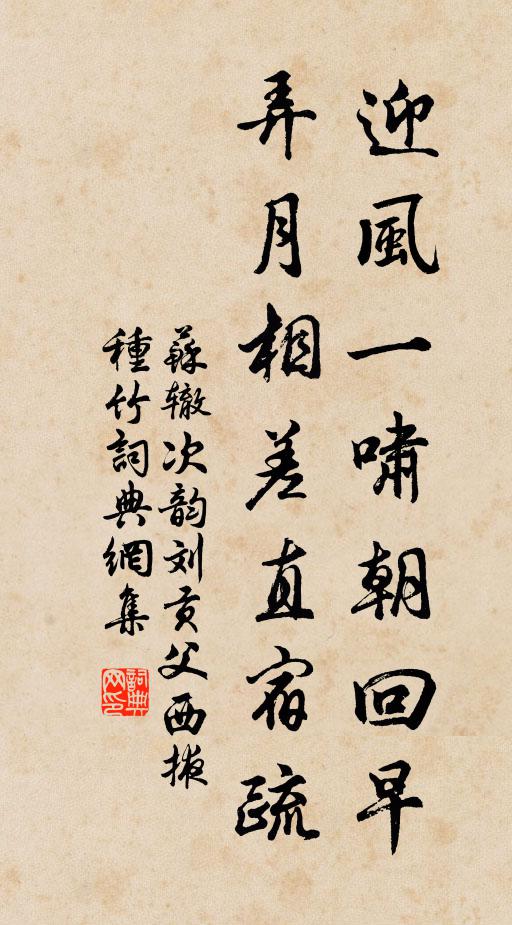 迎風一嘯朝回早
弄月相差直宿疏
蘇辙次韵刘贡父西掖
種竹詞典網集
詞典
网印